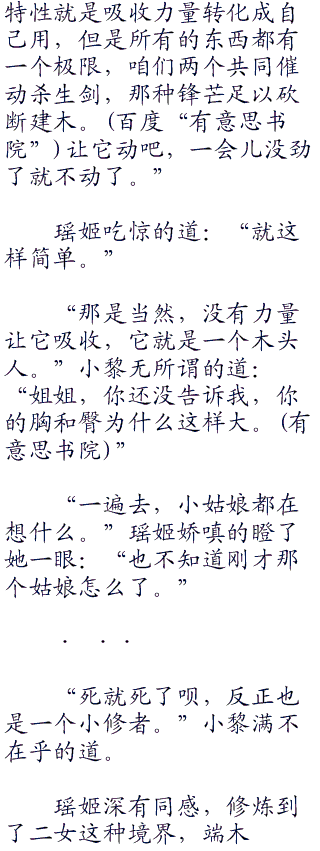 特性就是吸收力量转化成自
己用，但是所有的东西都有
一个极限，咱们两个共同催
动杀生剑，那种锋芒足以砍
断建木。(百度“有意思书
院”)让它动吧，一会儿没劲
了就不动了。”
瑶姬吃惊的道：“就这
样简单。”
“那是当然，没有力量
让它吸收，它就是一个木头
人。”小黎无所谓的道：
“姐姐，你还没告诉我，你
的胸和臀为什么这样大。(有
意思书院)”
“一遍去，小姑娘都在
想什么。”瑶姬娇嗔的瞪了
她一眼：“也不知道刚才那
个姑娘怎么了。”
. . . .
“死就死了呗，反正也
是一个小修者。”小黎满不
在乎的道。
瑶姬深有同感，修炼到
了二女这种境界，端木